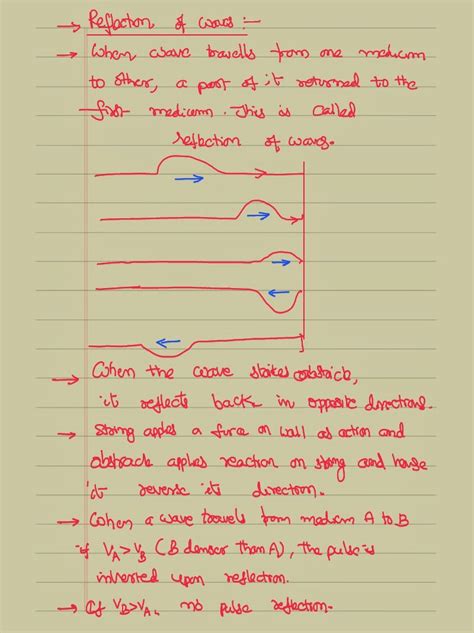 → Reflection of waves :-
→ When wave travells from one medium
to other, a part of it returned to the
first medium. This is called
reflection of waves.
→ When the wave strikes obstacle,
it reflects back in opposite directions.
→ String apples a force on wall as action and
obstrack applies reaction on string and
it reverse its direction.
→ When a wave travels from medium A to B
if VA>VB (B denser than A), the pulse is
inverted upon reflection.
→ If VB>VA, no pulse reflection.